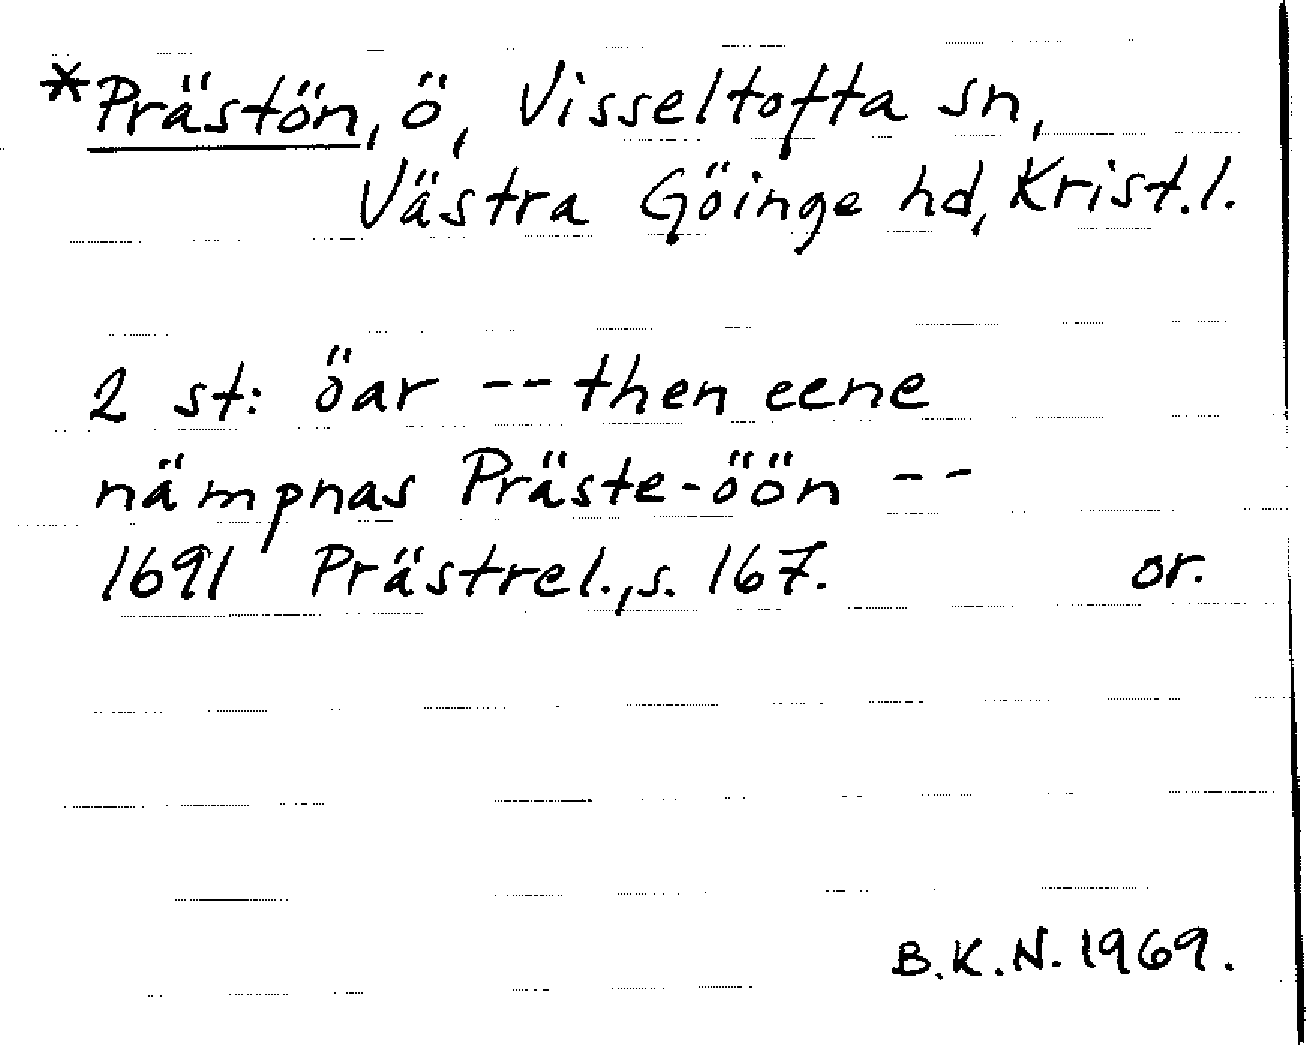 *Prästön, ö, Visseltofta sn,
Västra Göinge hd, Krist.l.
2 st: öar -- then eene
nämpnas Präste-öön --
1691 Prästrel., s. 167. or.
B.K.N. 1969.